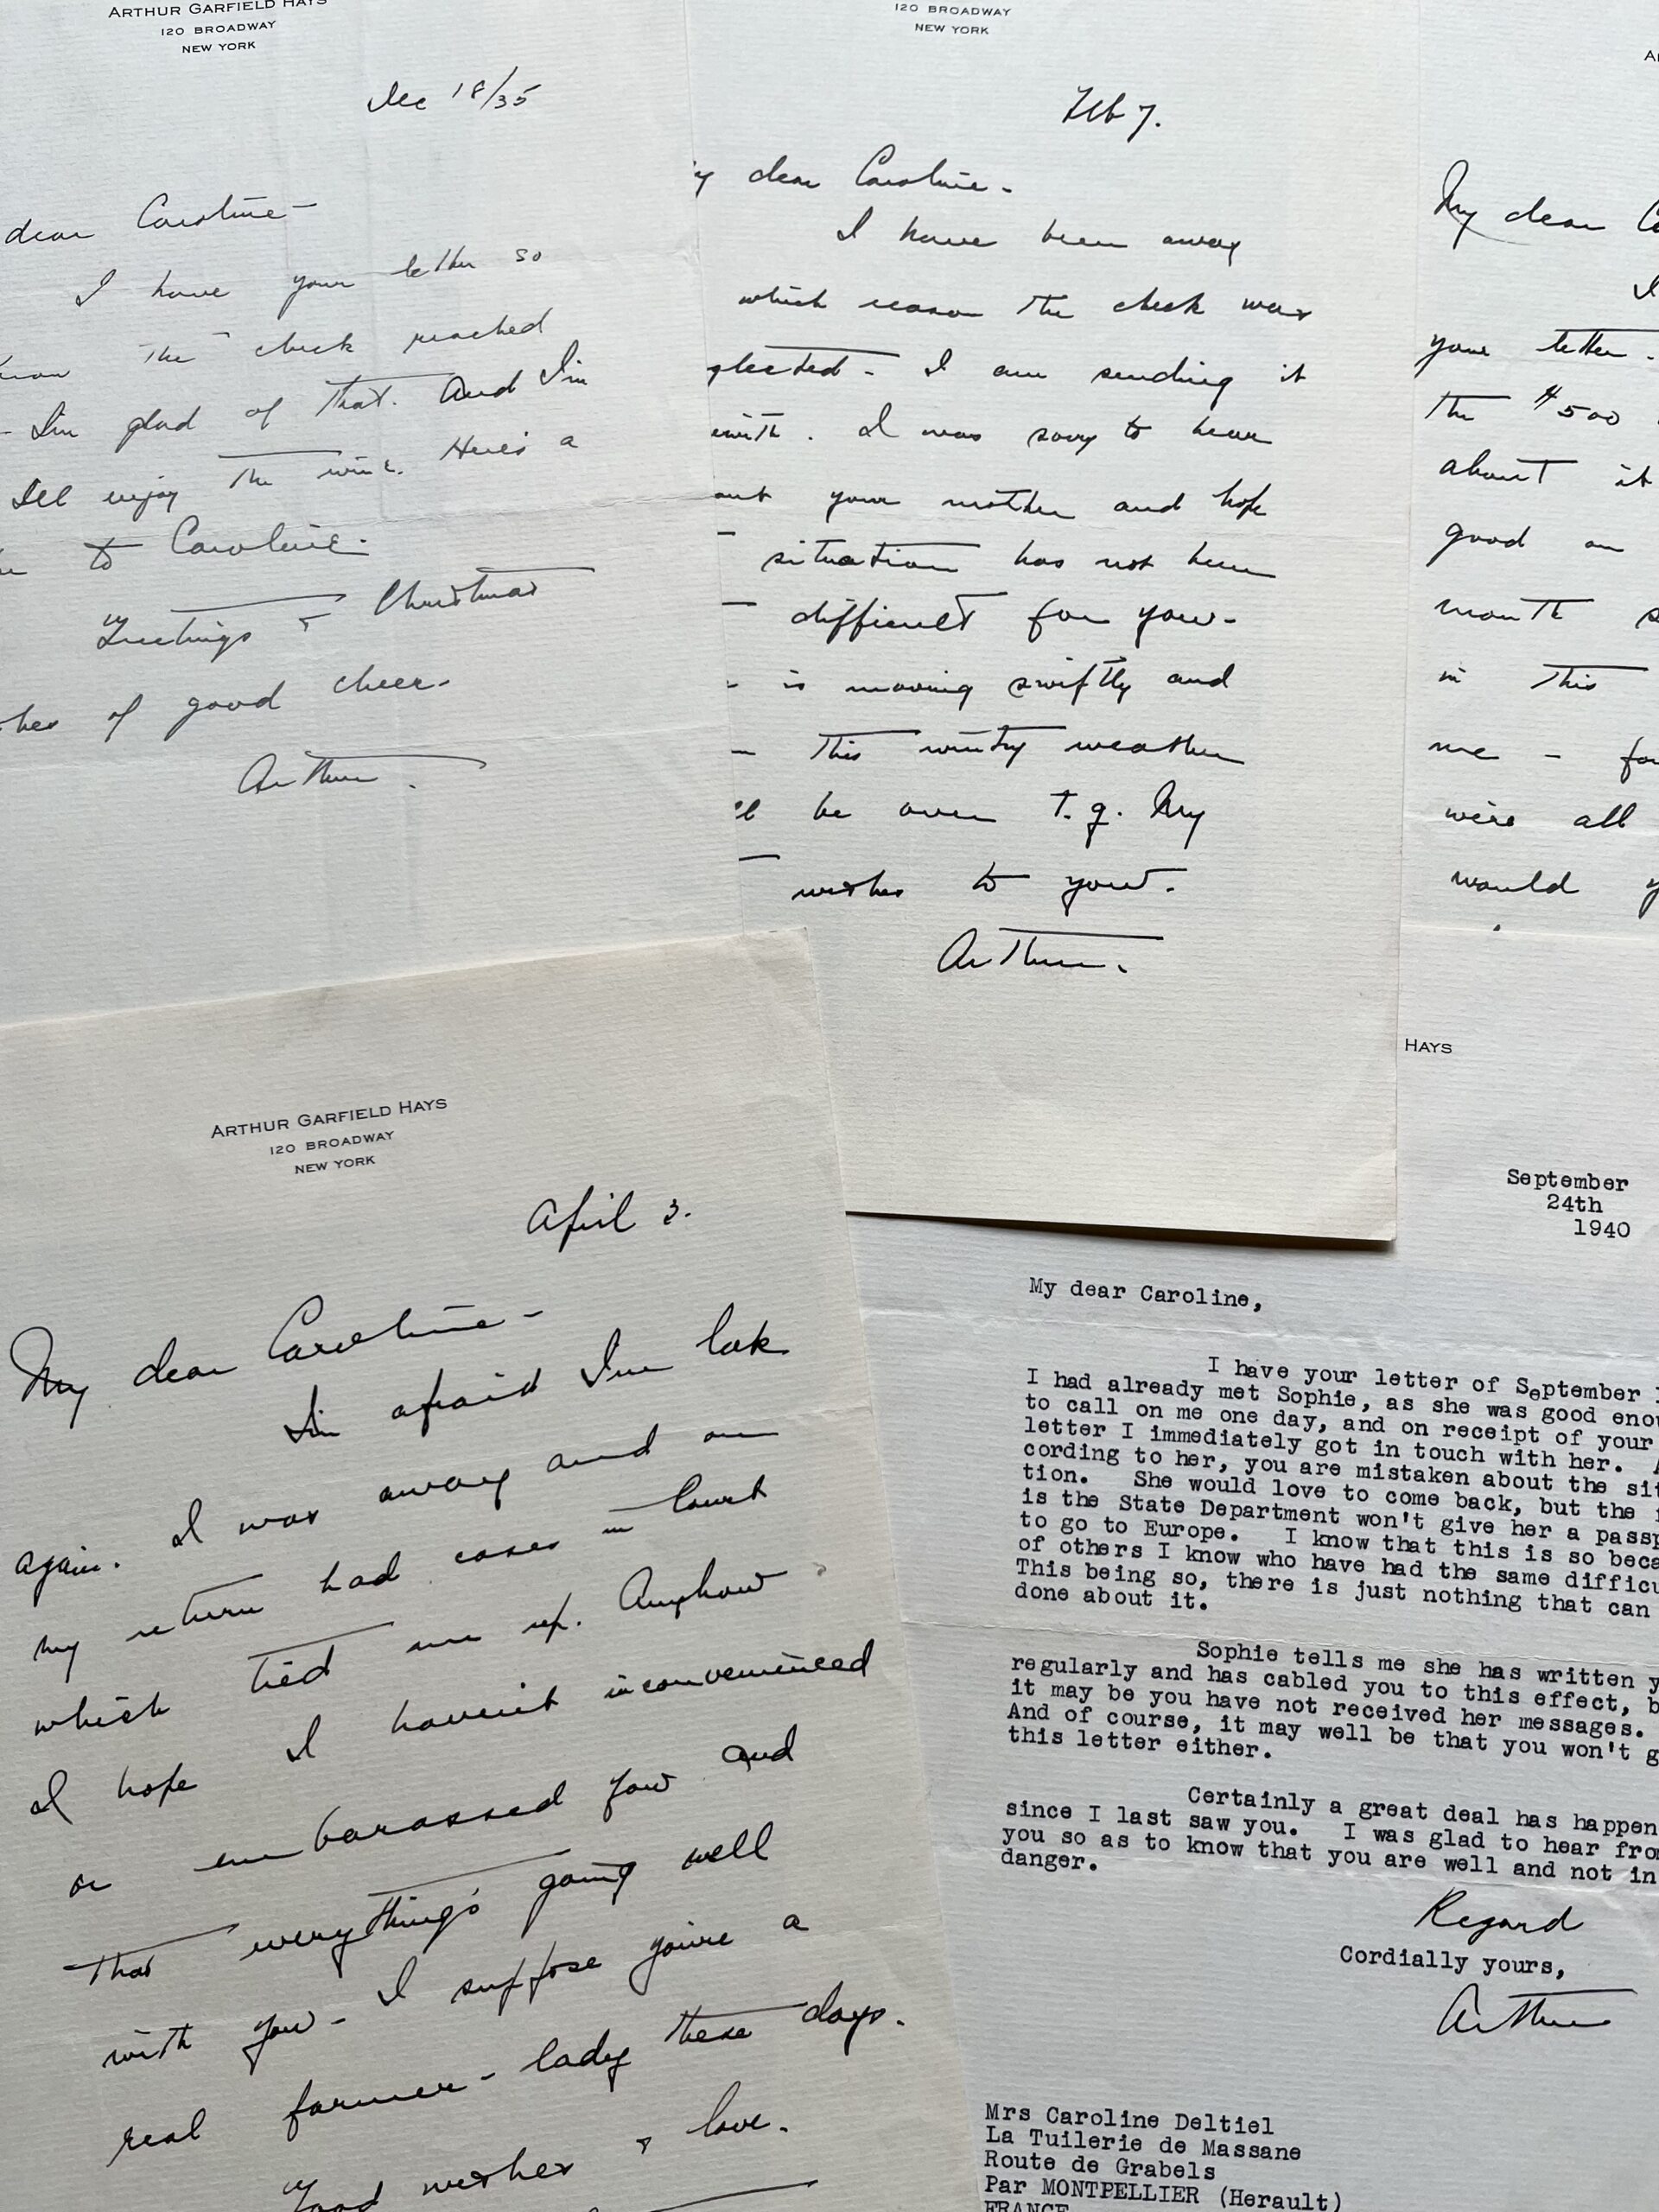 ARTHUR GARFIELD HAYS
120 BROADWAY
NEW YORK
Dec 18/35
dear Caroline-
I have your letter so
the check reached
- I'm glad of that. And I'm
I'll enjoy the wine. Here's a
to Caroline.
Greetings & Christmas
of good cheer.
Arthur.
120 BROADWAY
NEW YORK
Feb 7.
y dear Caroline-
I have been away
which reason the check was
glected - I am sending it
ewith. I was sorry to hear
out your mother and hope
situation has not been
difficult for you-
- is moving swiftly and
- this wintry weather
ll be over T.g. My
wishes to you.
Arthur.
My dear C
I
your letter.
the $500
about it
good on
month s
in this
me - fo
were all
would y
ARTHUR GARFIELD HAYS
120 BROADWAY
NEW YORK
April 3.
My dear Caroline-
I'm afraid I'm late
again. I was away and on
my return had cases in Court
which tied me up. Anyhow
I hope I haven't inconvenienced
or embarassed you and
that everything's going well
with you- I suppose you're a
real farmer-lady these days.
Good wishes & love.
HAYS
September
24th
1940
My dear Caroline,
I have your letter of September 1
I had already met Sophie, as she was good enou
to call on me one day, and on receipt of your
letter I immediately got in touch with her. A
cording to her, you are mistaken about the sit
tion. She would love to come back, but the f
is the State Department won't give her a passp
to go to Europe. I know that this is so beca
of others I know who have had the same difficu
This being so, there is just nothing that can
done about it.
Sophie tells me she has written y
regularly and has cabled you to this effect, b
it may be you have not received her messages.
And of course, it may well be that you won't g
this letter either.
Certainly a great deal has happen
since I last saw you. I was glad to hear fro
you so as to know that you are well and not in
danger.
Regard
Cordially yours,
Arthur
Mrs Caroline Deltiel
La Tuilerie de Massane
Route de Grabels
Par MONTPELLIER (Herault)
FRANCE